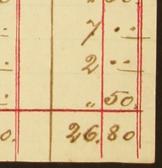 7 " "
2 " "
" 50.
0. 26.80